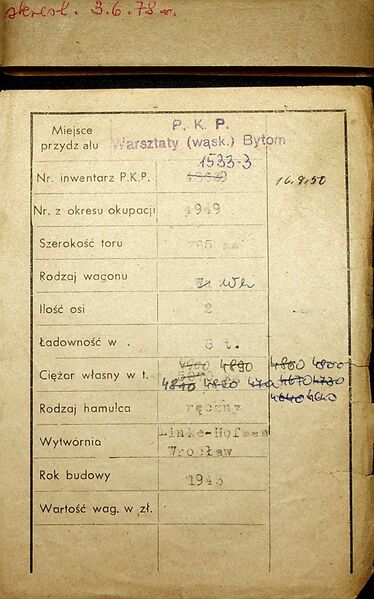 skreśl. 3.6.78 r.
P. K. P.
Miejsce przydziału Warsztaty (wąsk.) Bytom
1533-3
Nr. inwentarz P.K.P. 16.9.50
Nr. z okresu okupacji 1949
Szerokość toru 785 mm
Rodzaj wagonu Wh
Ilość osi 2
Ładowność w . 8 t.
4900 4890 4860 4800
Ciężar własny w t.
4810 4820 4710 4670 4730
4640 4640
Rodzaj hamulca ręczny
Wytwórnia Linke-Hofman
Wrocław
Rok budowy 1943
Wartość wag. w zł.